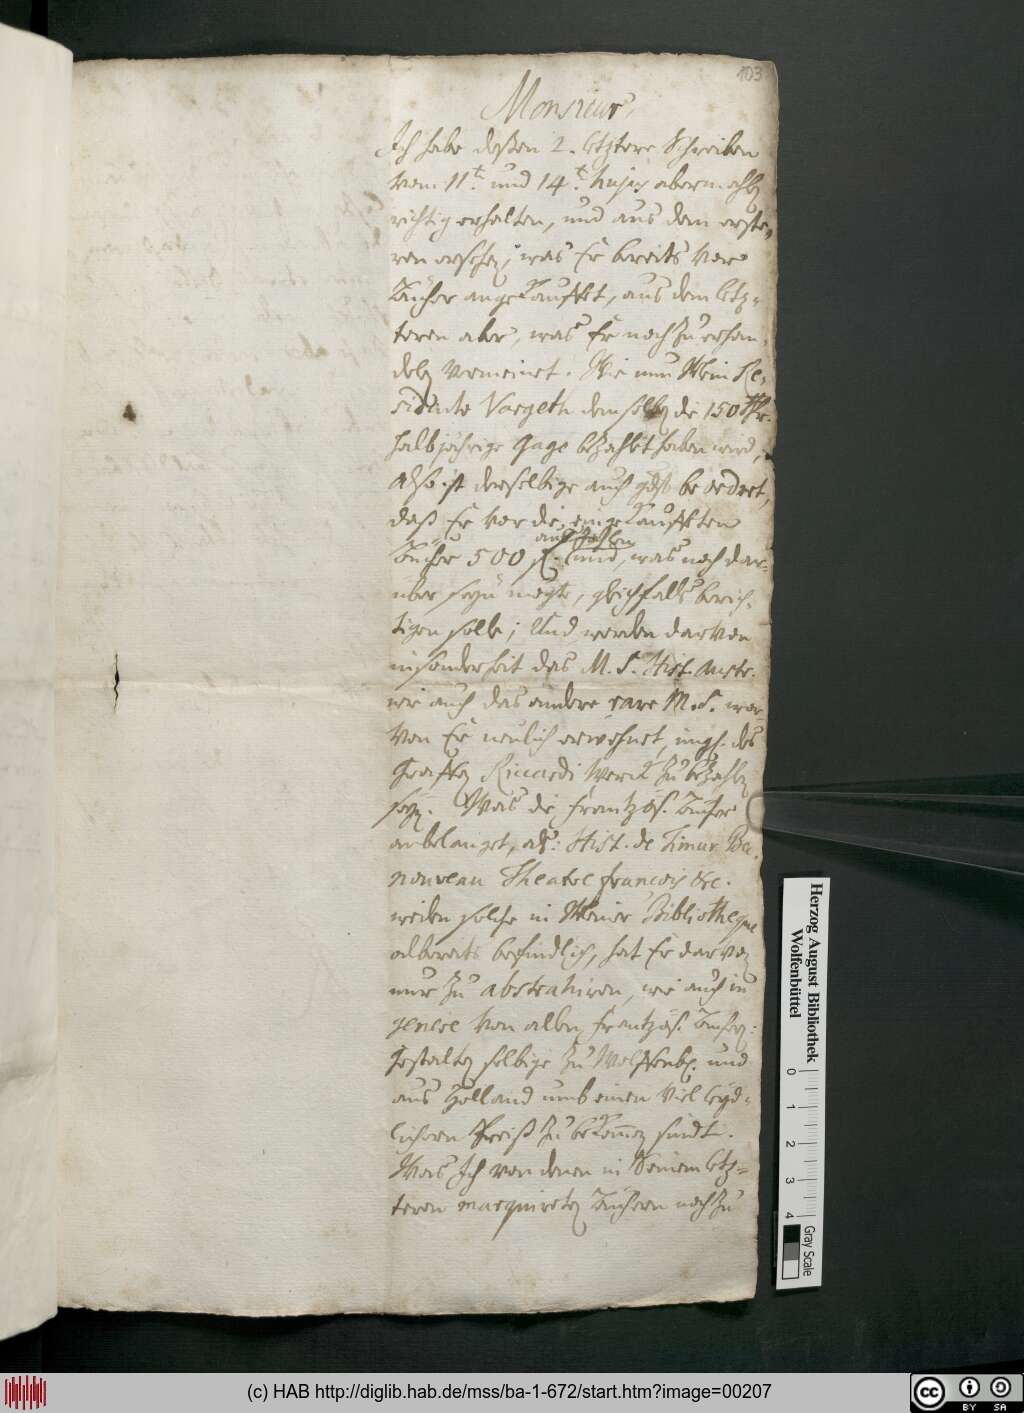 103
Monsieur,
Ich habe deßen 2. letztere Schreiben
vom 11t. und 14t. hujus abermahls
richtig erhalten, und aus dem erste-
ren ersehen, was Er bereits vor
Bücher angekaufft, aus dem letz-
teren aber, was Er noch zu erhan-
deln vermeinet. Wie nun Mein Re-
sidente Vargeth demselben die 150 Thlr.
halbjährige Gage bezahlt haben wird,
Also ist derselbige auch beordret,
daß Er vor die eingekaufften
auszahlen
Bücher 500 fl. und, was noch dar-
über seyn mögte, gleichfalls berich-
tigen solle; Und werden darvon
insonderheit das M. S. Hist. Austr.
wie auch das andere rare M. S. wor-
von Er neulich erwehnet, ingl. des
Graffen Riccardi Werck zu bezahlen
seyn. Was die Frantzös. Bücher
anbelanget, als: Hist. de Timur Bec.
nouveau Theatre francois &c.
weilen solche in Meiner Bibliotheque
albereits befindlich, hat Er darvon
nur zu abstrahiren, wie auch in
genere von allen Frantzös. Büchern:
Gestalten selbige zu Wolffenb. und
aus Holland umb einen viel leyd-
lichern Preiß zu bekommen sindt.
Was Ich von denen in Seinem letz-
teren marquirten Büchern noch zu
Herzog August Bibliothek
Wolfenbüttel
0 1 2 3 4
Gray Scale
(c) HAB http://diglib.hab.de/mss/ba-1-672/start.htm?image=00207
cc BY SA